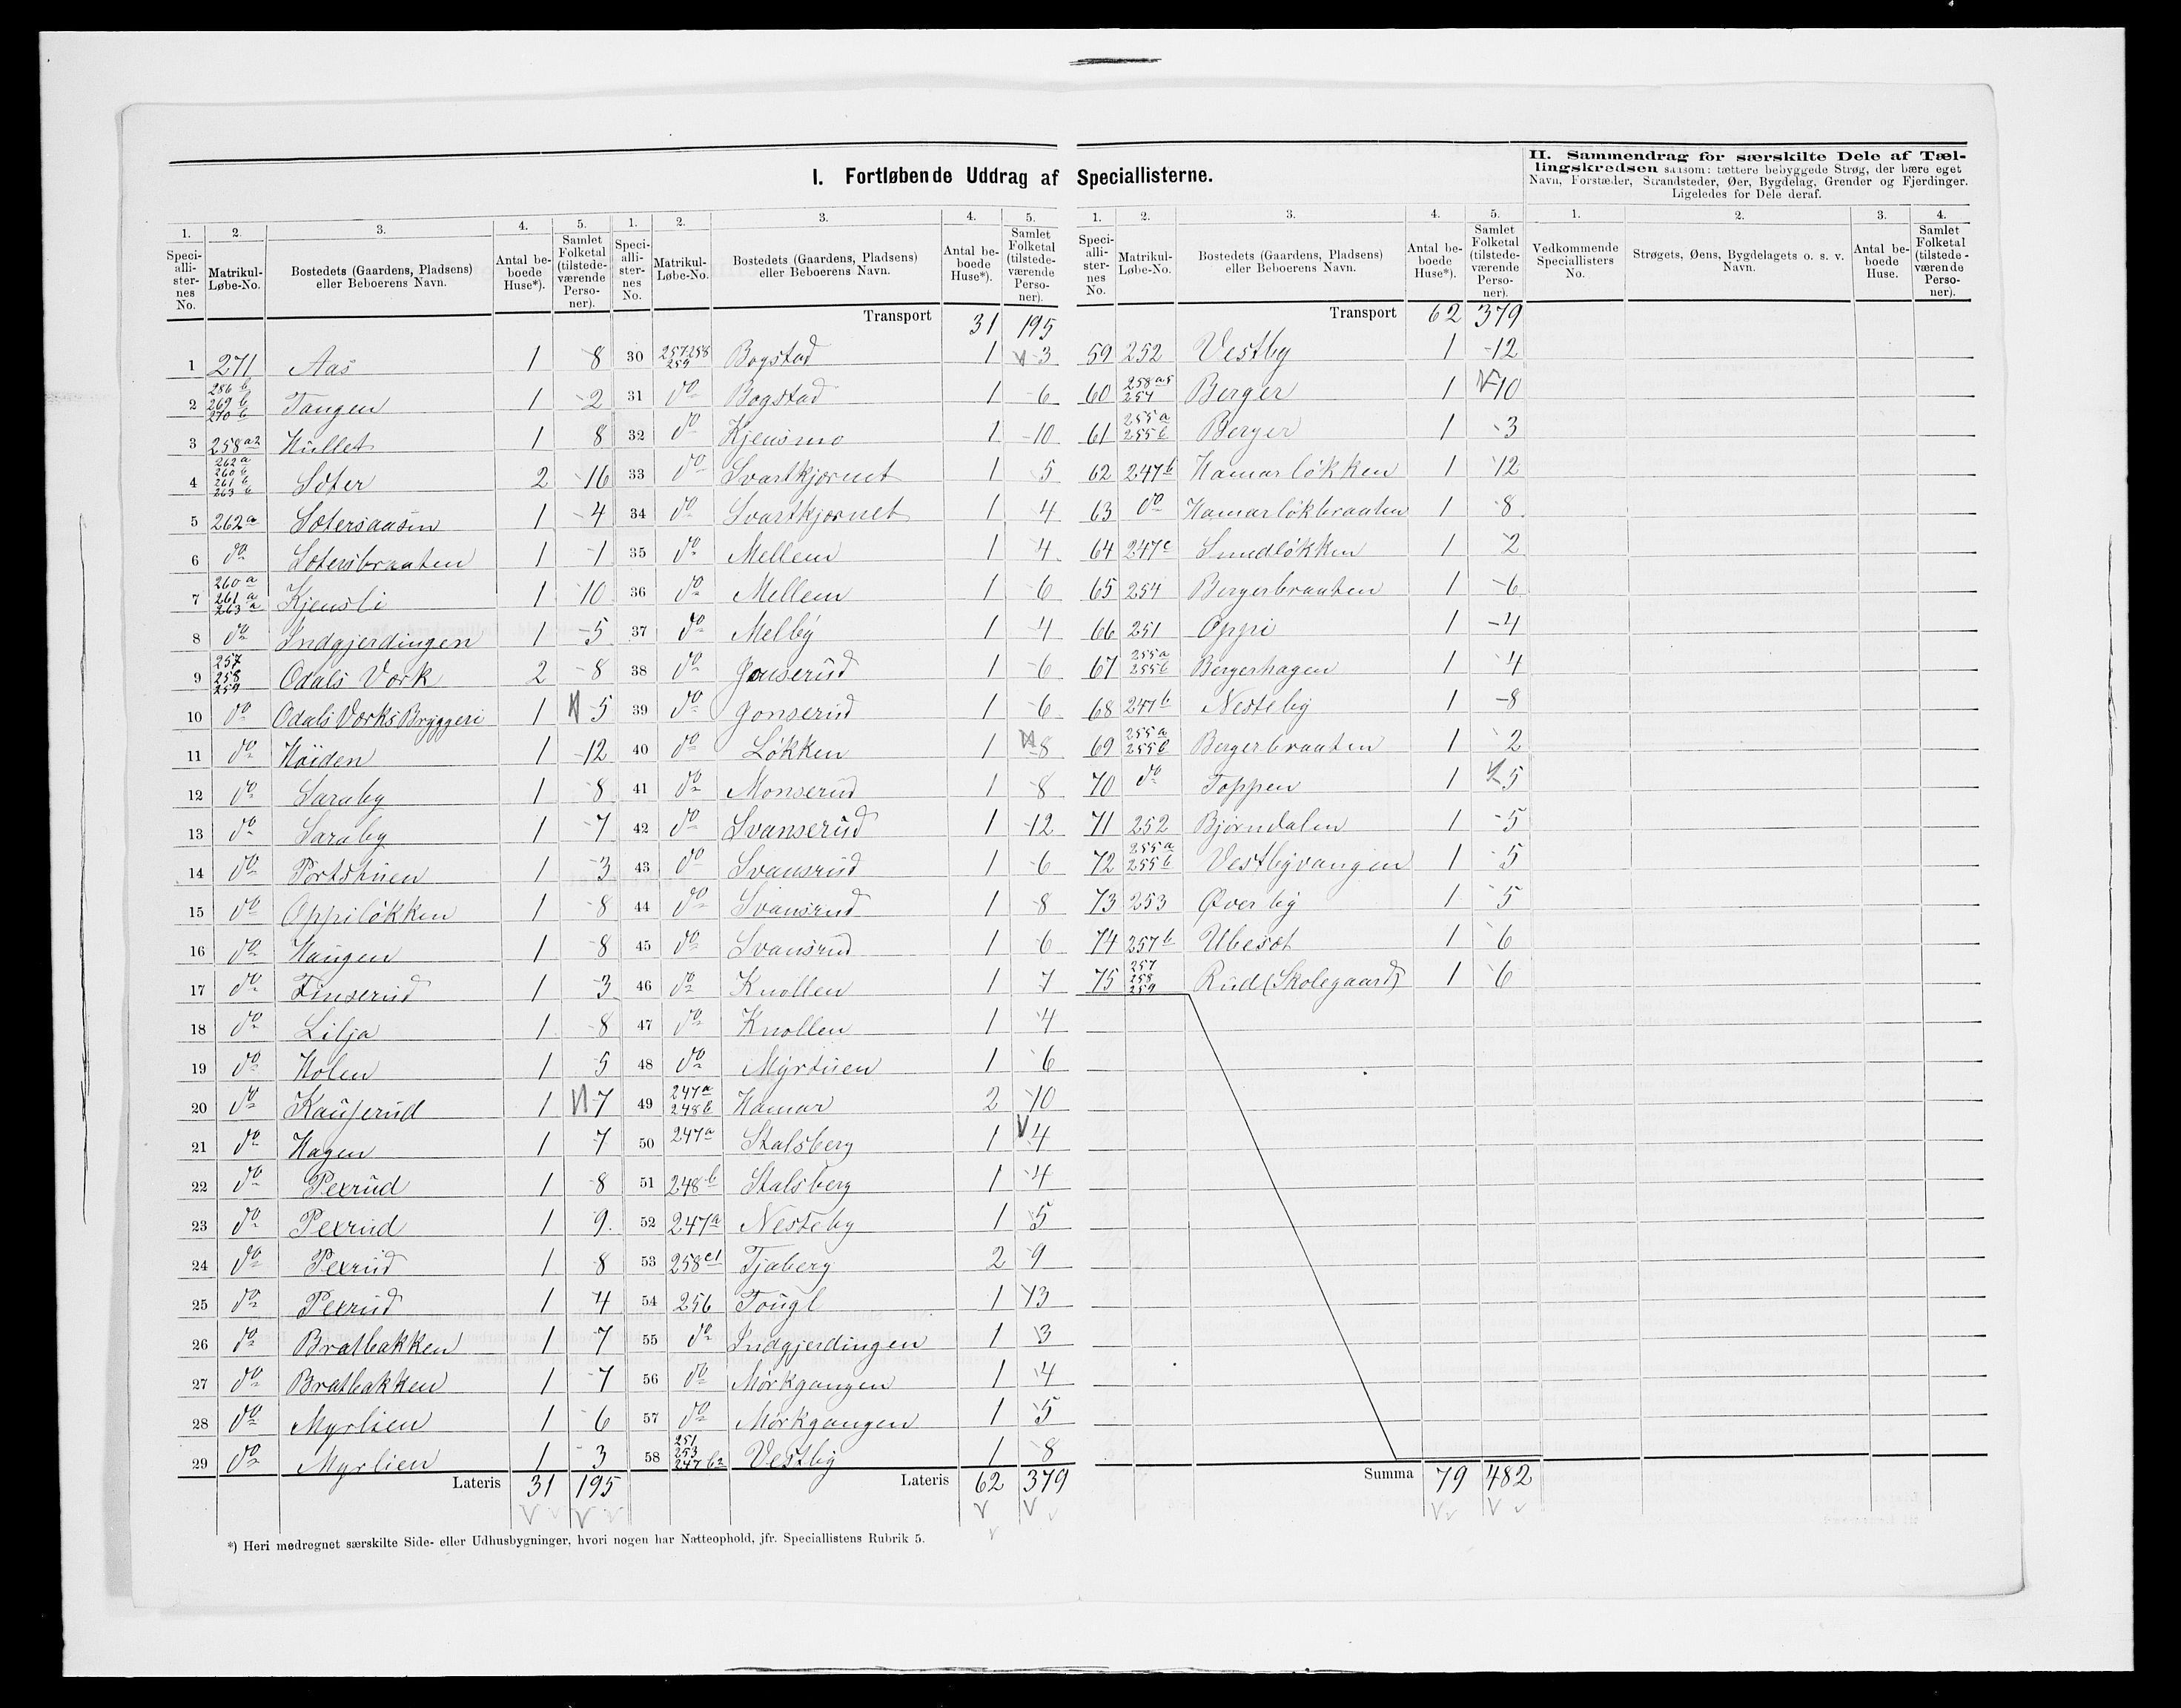 I. Fortløbende Uddrag af Speciallisterne.
II. Sammendrag for særskilte Dele af Tæl-
lingskredsen saasom: tættere bebyggede Strøg, der bære eget
Navn, Forstæder, Strandsteder, Øer, Bygdelag, Grender og Fjerdinger.
Ligeledes for Dele deraf.
1. 2. 3. 4. 5.
Speci-alli-ster-nes No. Matrikul-Løbe-No. Bostedets (Gaardens, Pladsens) eller Beboerens Navn. Antal be-boede Huse*). Samlet Folketal (tilstede-værende Perso-ner).
1 271 Aas 1 8
2 286 b 269 b 270 b Tangen 1 2
3 258 a2 Hullet 1 8
4 262 a 260 b 261 b 263 b Sæter 2 16
5 262 a Sætersaasen 1 4
6 do Sætersbraaten 1 1
7 260 a 261 a 263 a Kjensli 1 10
8 do Indgjerdingen 1 5
9 257 258 259 Odals Værk 2 8
10 do Odals Værks Bryggeri 1 5
11 do Haiden 1 12
12 do Saraby 1 8
13 do Saraby 1 7
14 do Portstuen 1 3
15 do Oppiløkken 1 8
16 do Haugen 1 8
17 do Finserud 1 3
18 do Lilja 1 8
19 do Holen 1 5
20 do Kauserud 1 7
21 do Hagen 1 7
22 do Pexrud 1 8
23 do Pexrud 1 9
24 do Pexrud 1 8
25 do Pexrud 1 4
26 do Bratbakken 1 7
27 do Bratbakken 1 7
28 do Myrlien 1 6
29 do Myrlien 1 3
Lateris 31 195
1. 2. 3. 4. 5.
Speci-alli-ster-nes No. Matrikul-Løbe-No. Bostedets (Gaardens, Pladsens) eller Beboerens Navn. Antal be-boede Huse*). Samlet Folketal (tilstede-værende Perso-ner).
Transport 31 195
30 257 258 259 Bogstad 1 3
31 do Bogstad 1 6
32 do Kjensmo 1 10
33 do Svartkjærnet 1 5
34 do Svartkjærnet 1 4
35 do Mellem 1 4
36 do Mellem 1 6
37 do Melby 1 4
38 do Gonserud 1 6
39 do Gonserud 1 6
40 do Løkken 1 8
41 do Monserud 1 8
42 do Svanserud 1 12
43 do Svansrud 1 6
44 do Svansrud 1 8
45 do Svansrud 1 6
46 do Knollen 1 7
47 do Knollen 1 4
48 do Myrtuen 1 6
49 247 a 248 b Hamar 2 10
50 247 a Stalsberg 1 4
51 248 b Stalsberg 1 4
52 247 a Nesteby 1 5
53 258 c1 Tjaberg 2 9
54 256 Tougl 1 13
55 do Indgjerdingen 1 3
56 do Mørkgangen 1 4
57 do Mørkgangen 1 5
58 251 253 247 b2 Vestby 1 8
Lateris 62 379
1. 2. 3. 4. 5.
Speci-alli-ster-nes No. Matrikul-Løbe-No. Bostedets (Gaardens, Pladsens) eller Beboerens Navn. Antal be-boede Huse*). Samlet Folketal (tilstede-værende Perso-ner).
Transport 62 379
59 252 Vestby 1 12
60 258 a5 254 Berger 1 10
61 255 a 255 b Berger 1 3
62 247 b Hamarløkken 1 12
63 do Hamarløkbraaten 1 8
64 247 c Smedløkken 1 2
65 254 Bergerbraaten 1 6
66 251 Oppi 1 4
67 255 a 255 b Bergerhagen 1 4
68 247 b Nesteby 1 8
69 255 a 255 b Bergerbraaten 1 2
70 do Toppen 1 5
71 252 Bjørndalen 1 5
72 255 a 255 b Vestbyvangen 1 5
73 253 Øverby 1 5
74 257 b Ubesat 1 6
75 257 258 259 Rud (Skolegaard) 1 6
Summa 79 482
1. 2. 3. 4.
Vedkommende Speciallisters No. Strøgets, Øens, Bygdelagets o. s. v. Navn. Antal be-boede Huse. Samlet Folketal (tilstede-værende Perso-ner).
*) Heri medregnet særskilte Side- eller Udhusbygninger, hvori nogen har Natteophold, jfr. Speciallistens Rubrik 5.